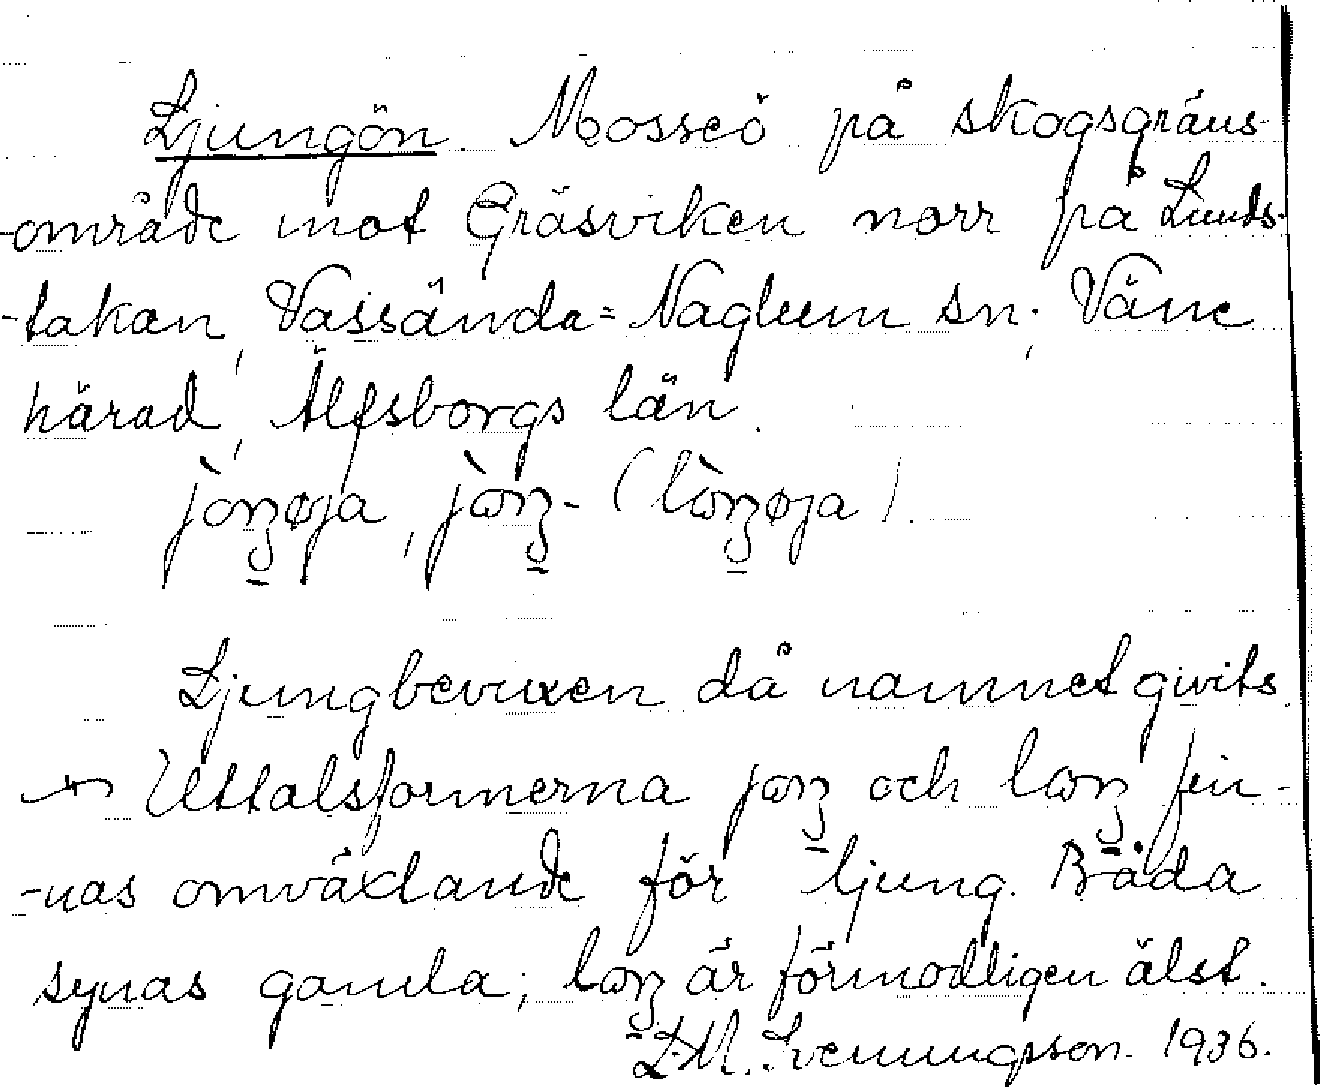 Ljungön. Mosseö på skogsgräns-
-område mot Gräsviken norr på Lunds-
-takan, Vassända=Naglum sn; Väne
härad, Älfsborgs län.
Ljungbevuxen då namnet givits.
Uttalsformerna och fin-
-nas omväxlande för ljung. Båda
synas gamla; är förmodligen älst.
L.M. Svenungsson. 1936.